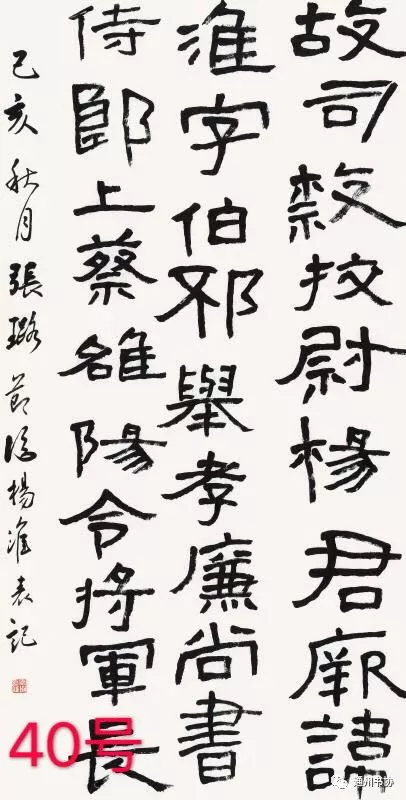 故司隸挍尉楊君厥諱
淮字伯邳舉孝廉尚書
侍郎上蔡雒陽令将軍長
己亥秋月張璐節臨楊淮表記
40号
通州书协